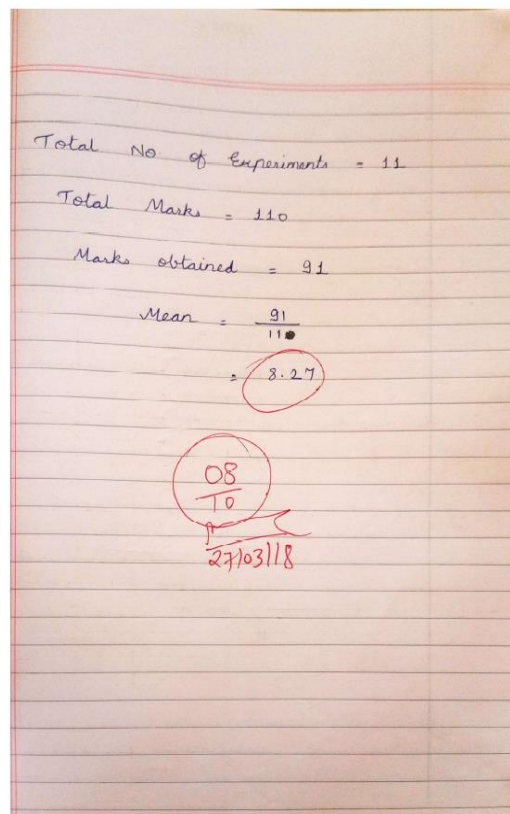 Total No of Experiments = 11
Total Marks = 110
Marks obtained = 91
Mean = 91
11
= 8.27
08
10
27/03/18